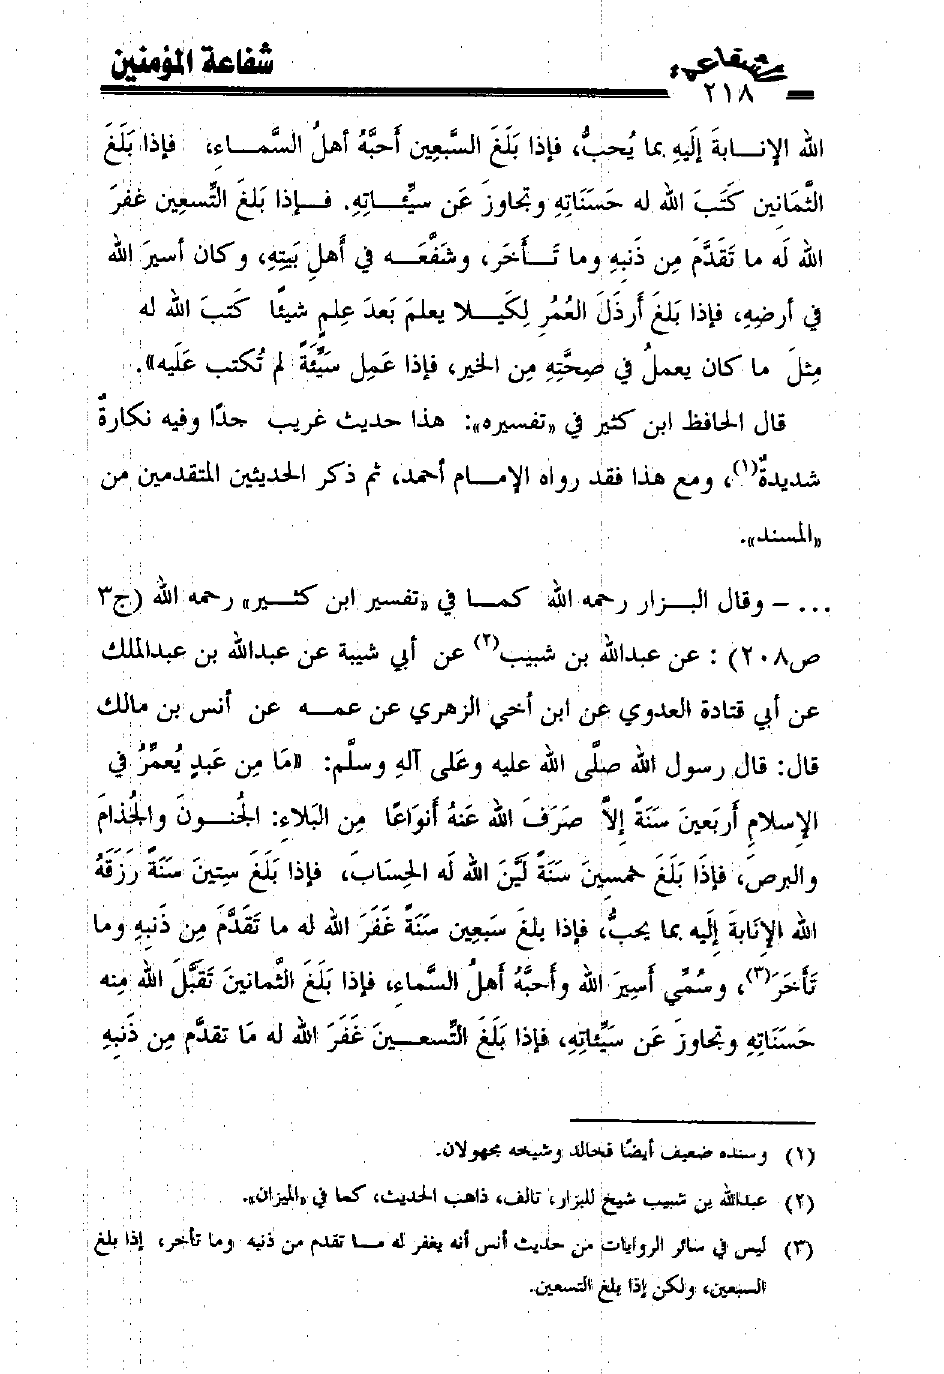 الشفاعة
٢١٨
شفاعة المؤمنين
الله الإنـابةَ إلَيهِ بما يُحبُّ، فإذا بَلَغَ السَّبعِين أَحبَّهُ أهلُ السَّمـاءِ، فإذا بَلَغَ
الثَّمَانِين كَتَبَ الله له حَسَنَاتِهِ وتجاوزَ عَن سيِّئـاتِهِ. فـإذا بَلَغَ التِّسعِين غفرَ
الله لَه ما تَقَدَّمَ مِن ذَنبِهِ وما تـأَخرَ، وشفَّعَـه في أَهلِ بَيتِهِ، وكان أسيرَ الله
في أرضِهِ، فإذا بَلَغَ أَرذَلَ العُمُرِ لِكَيـلا يعلمَ بَعدَ عِلمٍ شيئًا كَتبَ الله له
مِثلَ ما كان يعملُ في صِحَّتِهِ مِن الخير، فإذا عَمِل سَيِّئَةً لم تُكتب عَلَيه».
قال الحافظ ابن كثير في «تفسيره»: هذا حديث غريب جدًا وفيه نكارةٌ
شديدةٌ(١)، ومع هذا فقد رواه الإمـام أحمد، ثم ذكر الحديثين المتقدمين من
«المسند».
... – وقال البـزار رحمه الله كمـا في «تفسير ابن كثـير» رحمه الله (ج٣
ص٢٠٨) : عن عبدالله بن شبيب(٢) عن أبي شيبة عن عبدالله بن عبدالملك
عن أبي قتادة العدوي عن ابن أخي الزهري عن عمـه عن أنس بن مالك
قال: قال رسول الله صلَّى الله عليه وعَلى آلهِ وسلَّم: «مَا مِن عَبدٍ يُعمَّرُ في
الإسلامِ أَربَعينَ سَنَةً إلاَّ صَرَفَ الله عَنهُ أَنوَاعًا مِن البَلاءِ: الجُنـونَ والجُذامَ
والبرصَ، فإذَا بَلَغَ خمسِينَ سَنَةً لَيَّنَ الله لَه الحِسَابَ، فإذا بَلَغَ سِتينَ سَنَةً رَزَقَهُ
الله الإِنَابةَ إلَيه بما يحبُّ، فإذا بلغَ سَبعِين سَنَةً غَفَرَ الله له ما تَقَدَّمَ مِن ذَنبِهِ وما
تَأَخرَ(٣)، وسُمِّي أَسِيرَ الله وأَحبَّهُ أهلُ السَّماءِ، فإذا بَلَغَ الثَّمانينَ تَقَبَّلَ الله مِنه
حَسَنَاتِهِ وتجاوزَ عَن سَيِّئاتِهِ، فإذا بَلَغَ التِّسعـينَ غَفَرَ الله له مَا تقدَّم مِن ذَنبِهِ
(١) وسنده ضعيف أيضًا فخالد وشيخه مجهولان.
(٢) عبدالله بن شبيب شيخ للبزار، تالف، ذاهب الحديث، كما في «الميزان».
(٣) ليس في سائر الروايات من حديث أنس أنه يغفر له مـا تقدم من ذنبه وما تأخر، إذا بلغ
السبعين، ولكن إذا بلغ التسعين.